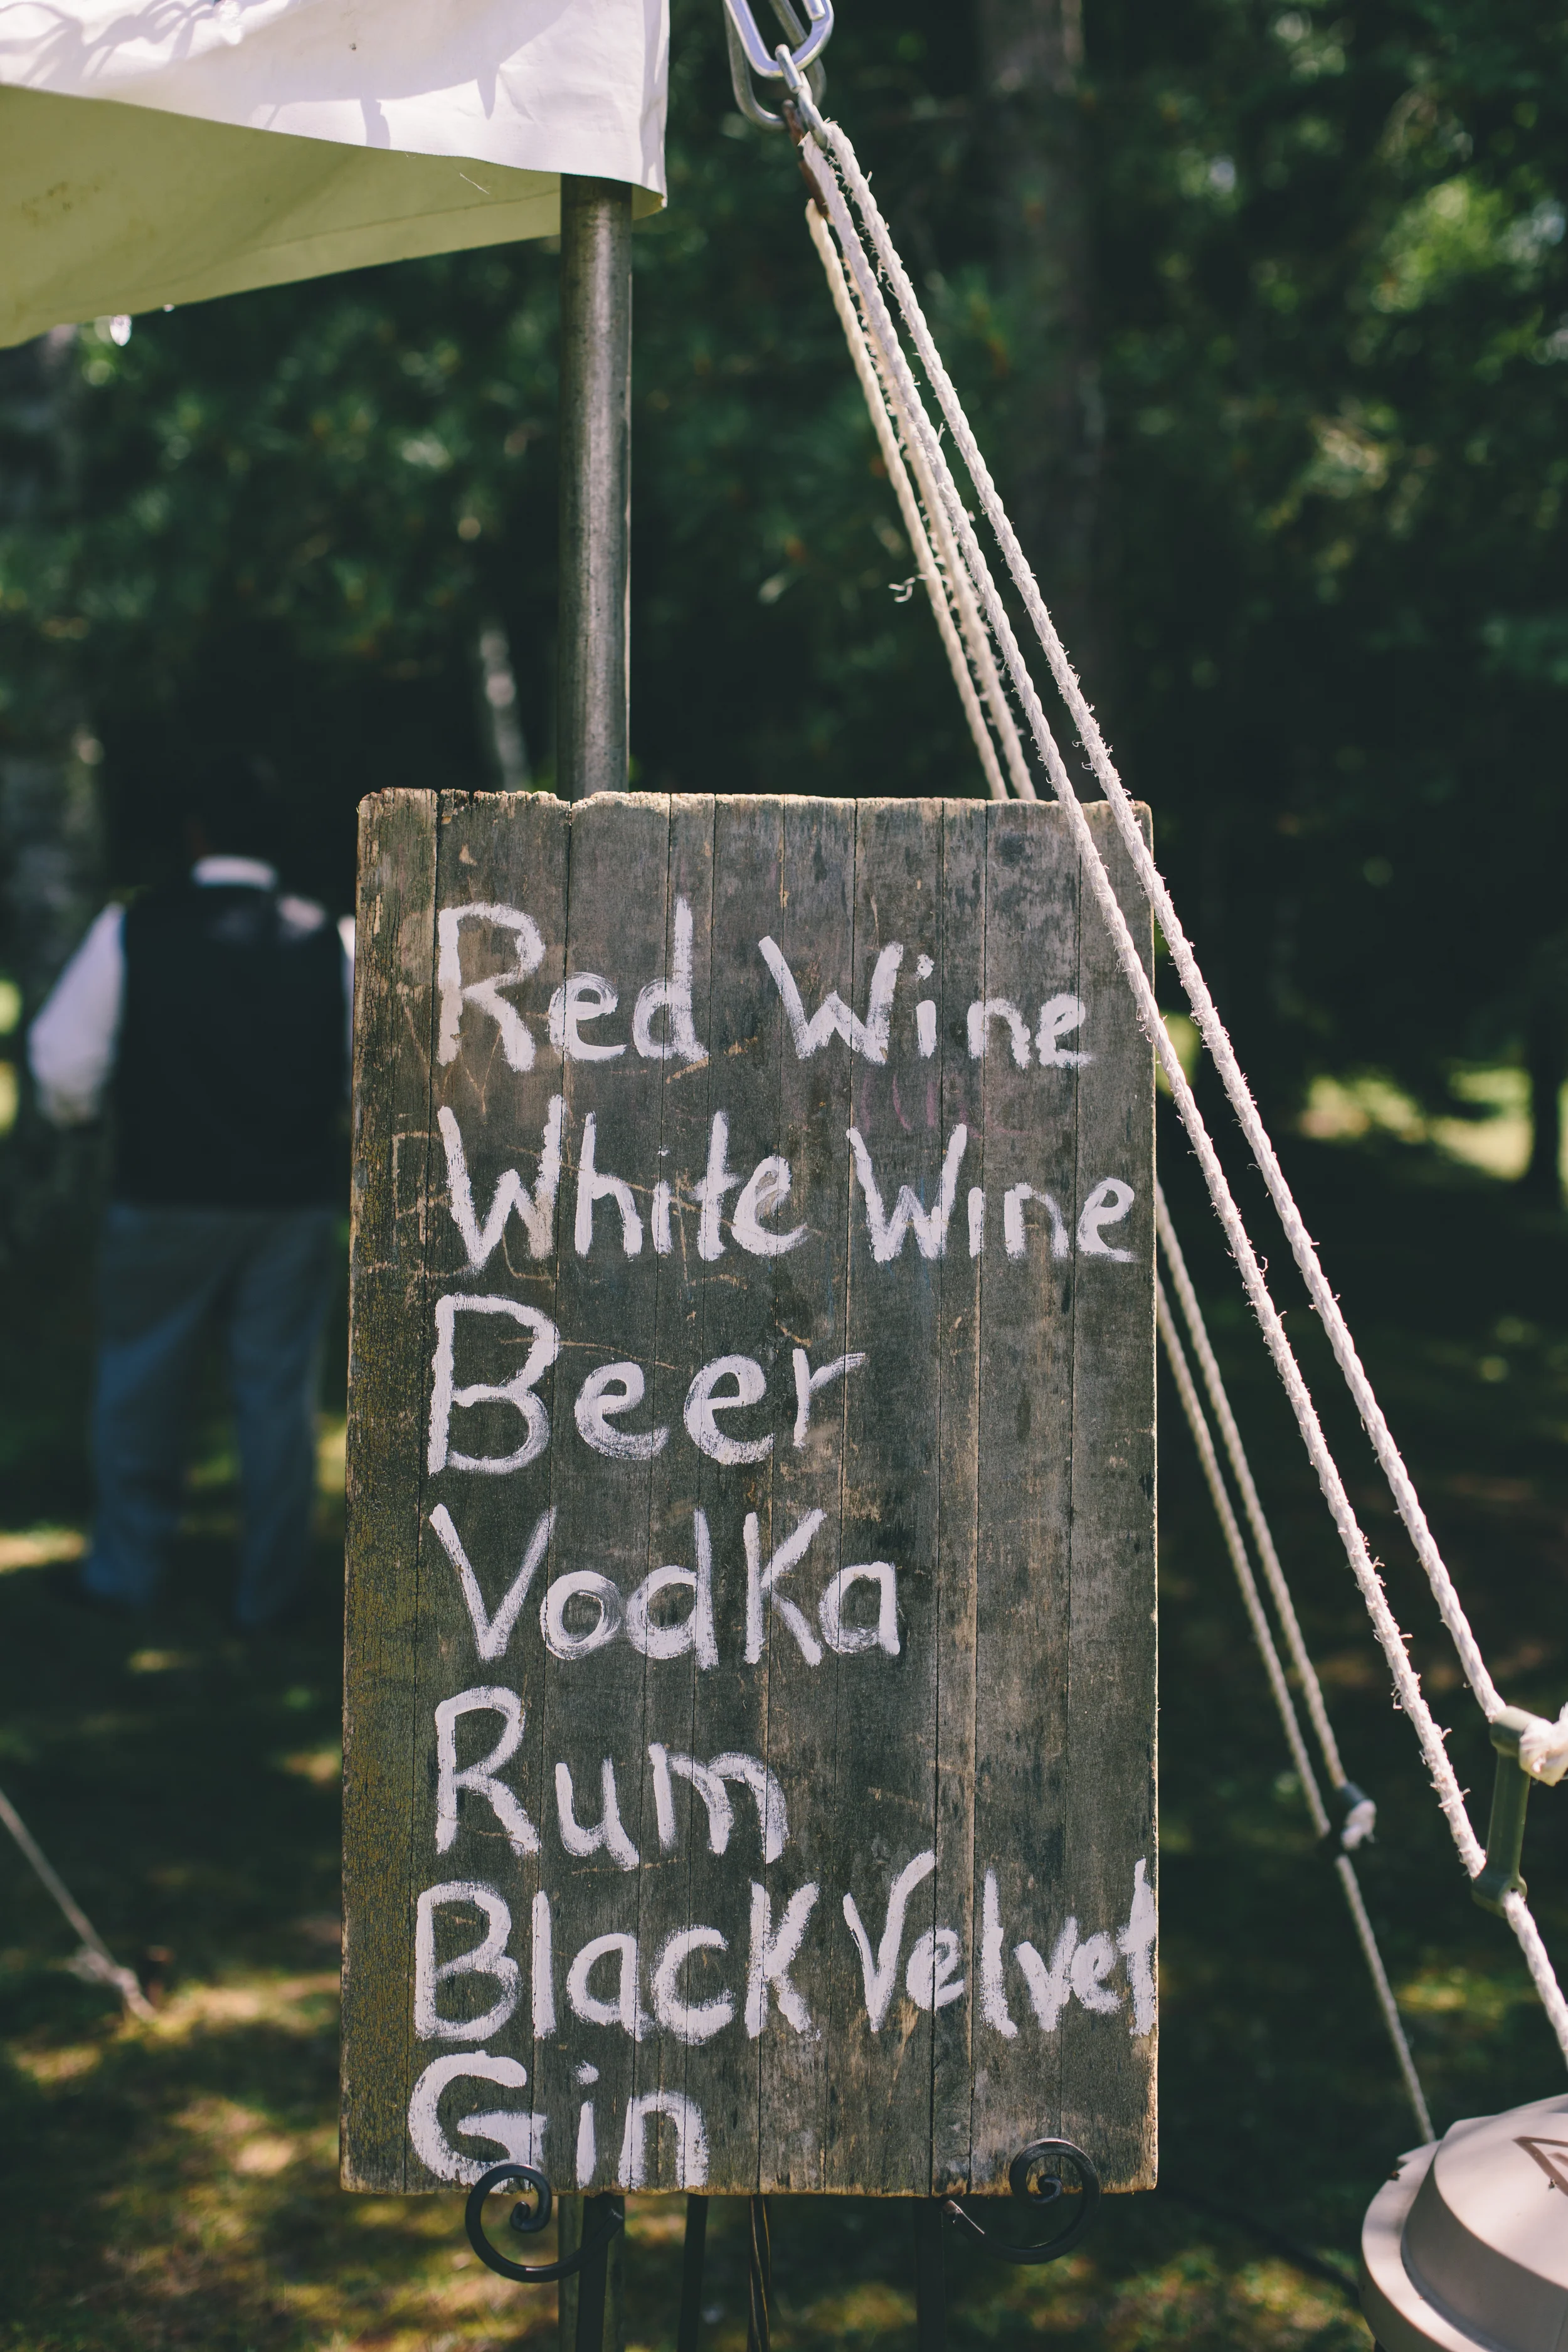 Red Wine
White Wine
Beer
Vodka
Rum
Black Velvet
Gin